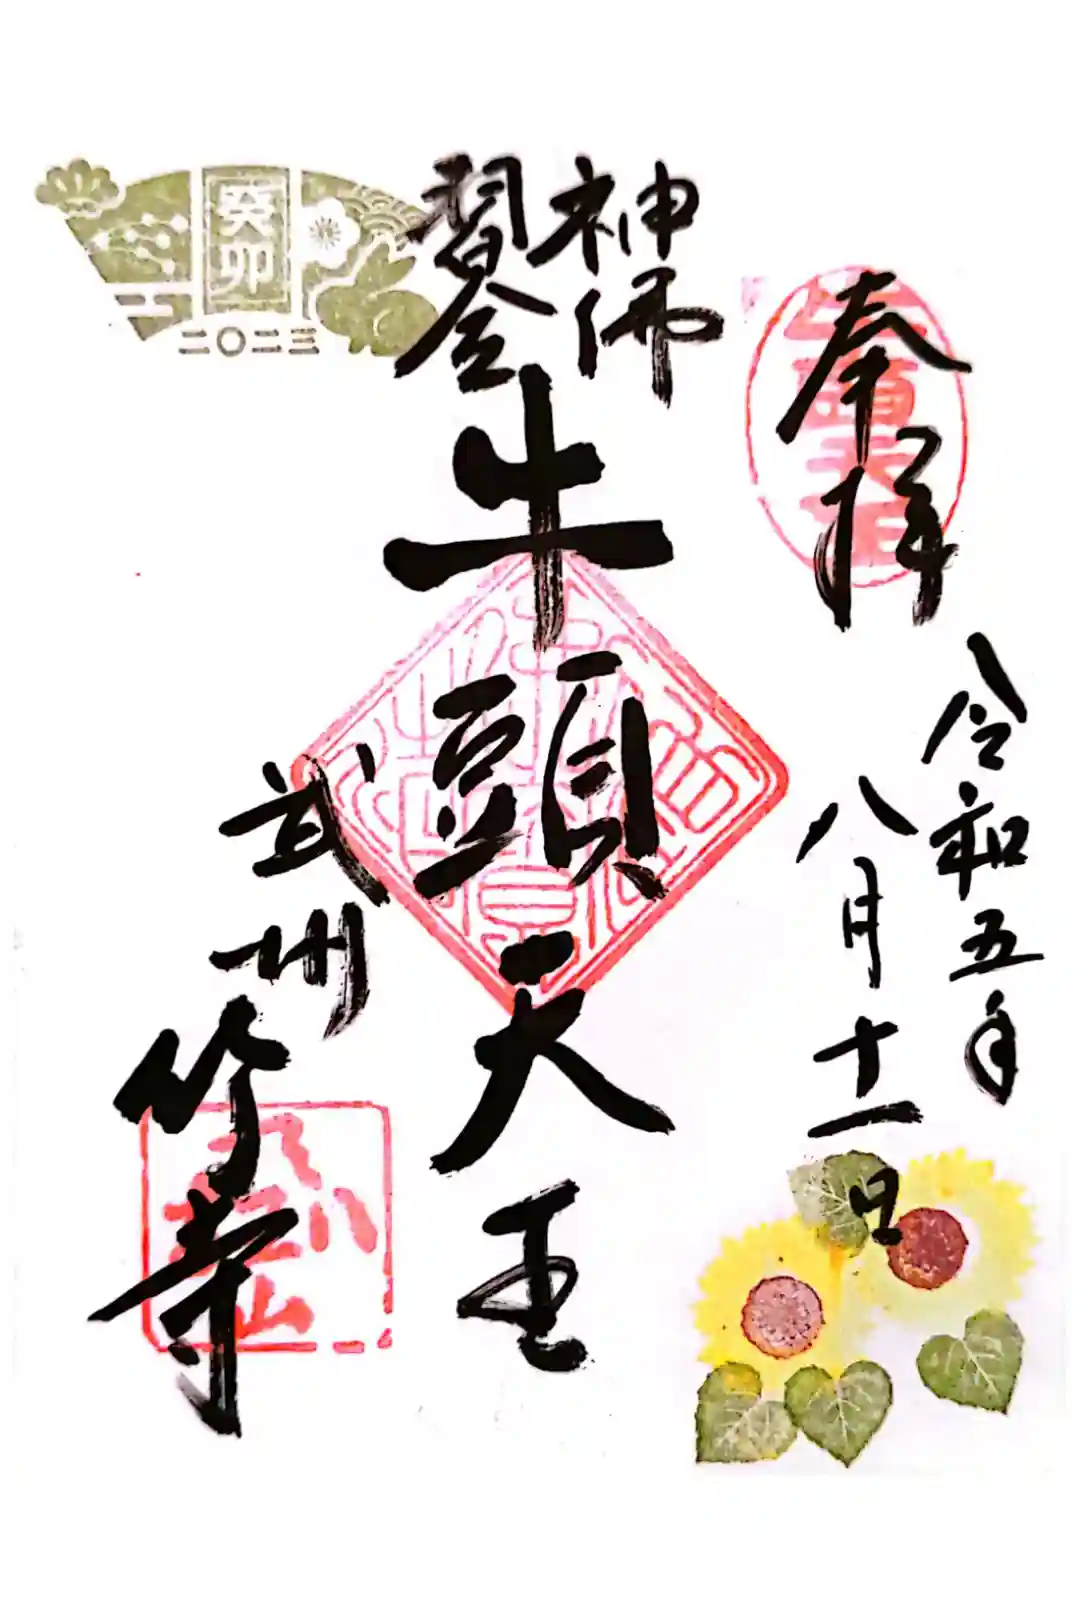 奉拝
令和五年
八月十一日
神佛
習合
牛頭天王
武州
竹寺
癸卯
二〇二三